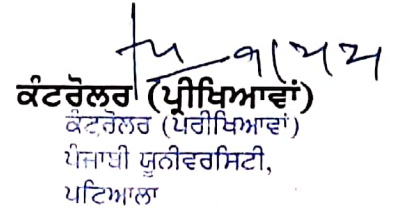 ਕੰਟਰੋਲਰ (ਪ੍ਰੀਖਿਆਵਾਂ)
ਕੰਟਰੋਲਰ (ਪਰੀਖਿਆਵਾਂ)
ਪੰਜਾਬੀ ਯੂਨੀਵਰਸਿਟੀ,
ਪਟਿਆਲਾ